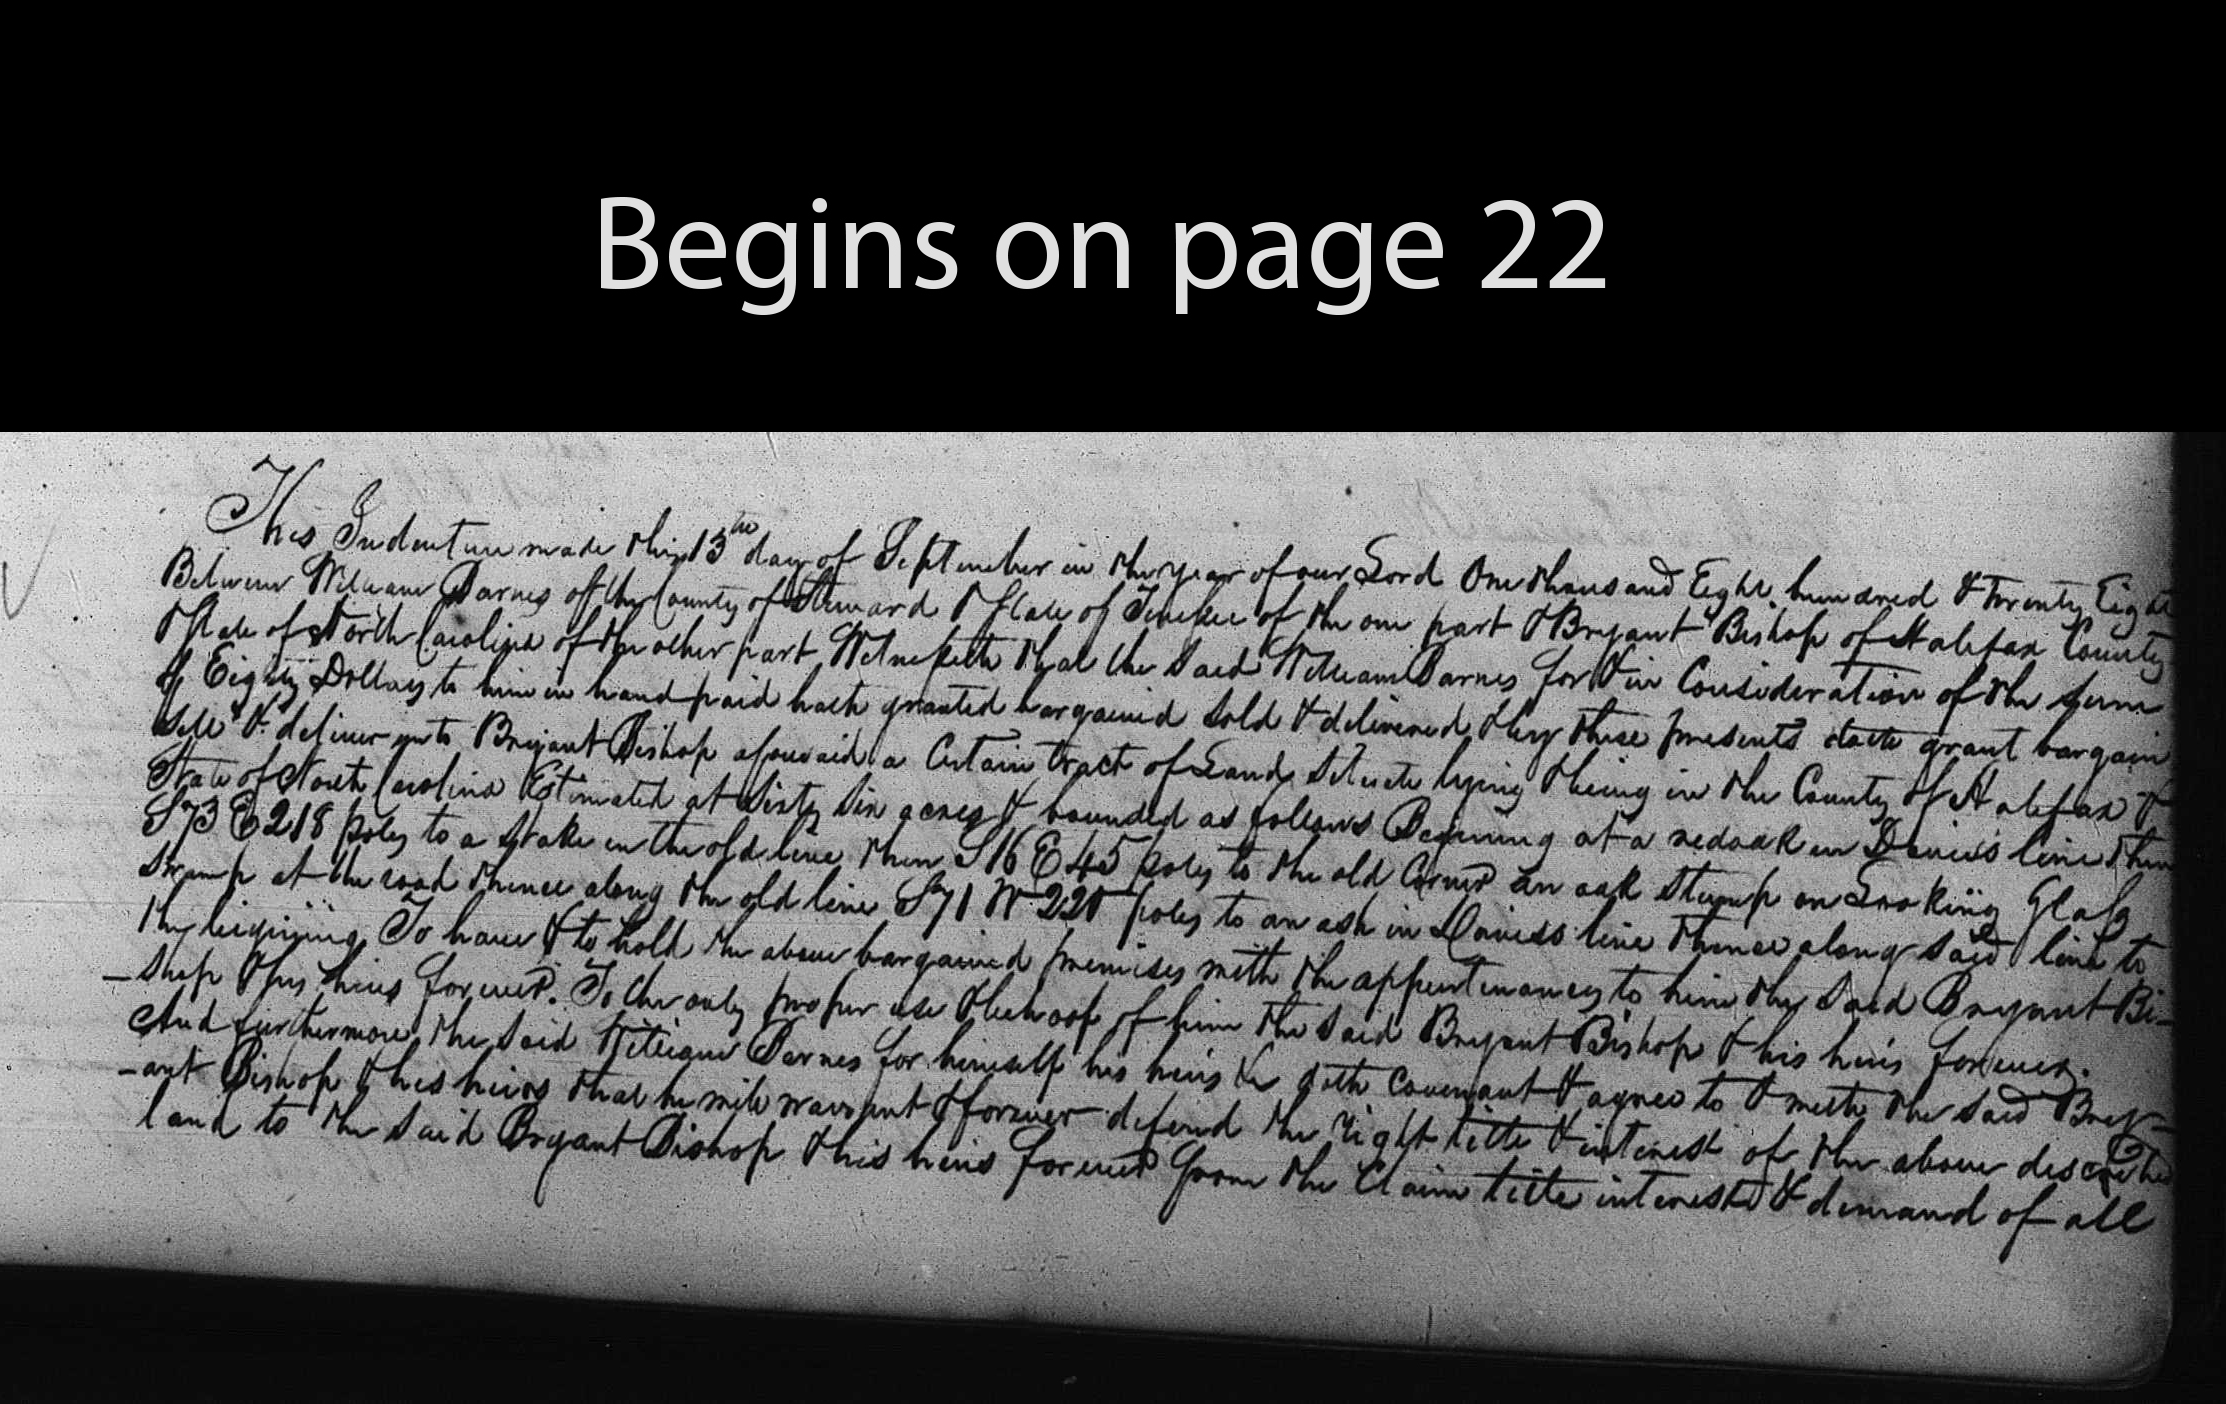 Begins on page 22
This Indenture made this 13th day of September in the year of our Lord One thousand Eight hundred & Twenty Eight
Between William Barnes of the County of Steward & State of Tenesee of the one part & Bryant Bishop of Halifax County
& State of North Carolina of the other part Witnesseth that the said William Barnes for & in Consideration of the sum
of Eighty Dollars to him in hand paid hath granted bargained sold & delivered & by these presents doth grant bargain
sell & deliver unto Bryant Bishop aforesaid a Certain tract of Land situate lying & being in the County of Halifax &
State of North Carolina Estimated at Sixty Six acres & bounded as follows Begining at a redoak in Davis's line then
S 73 E 218 poles to a stake in the old line then S 16 E 45 poles to the old Corner an oak stump on Looking Glass
swamp at the road thence along the old line S 71 W 220 poles to an ash in Davis's line thence along said line to
the begining To have & to hold the above bargained premises with the appurtinances to him the said Bryant Bi-
-shop & his heirs forever. To the only proper use & behoof of him the said Bryant Bishop & his heirs forever.
And furthermore the said William Barnes for himself his heirs &c doth covenant & agree to & with the said Bry-
-ant Bishop & his heirs that he will warrant & forever defend the right title & interest of the above described
land to the said Bryant Bishop & his heirs forever from the claim title interest & demand of all